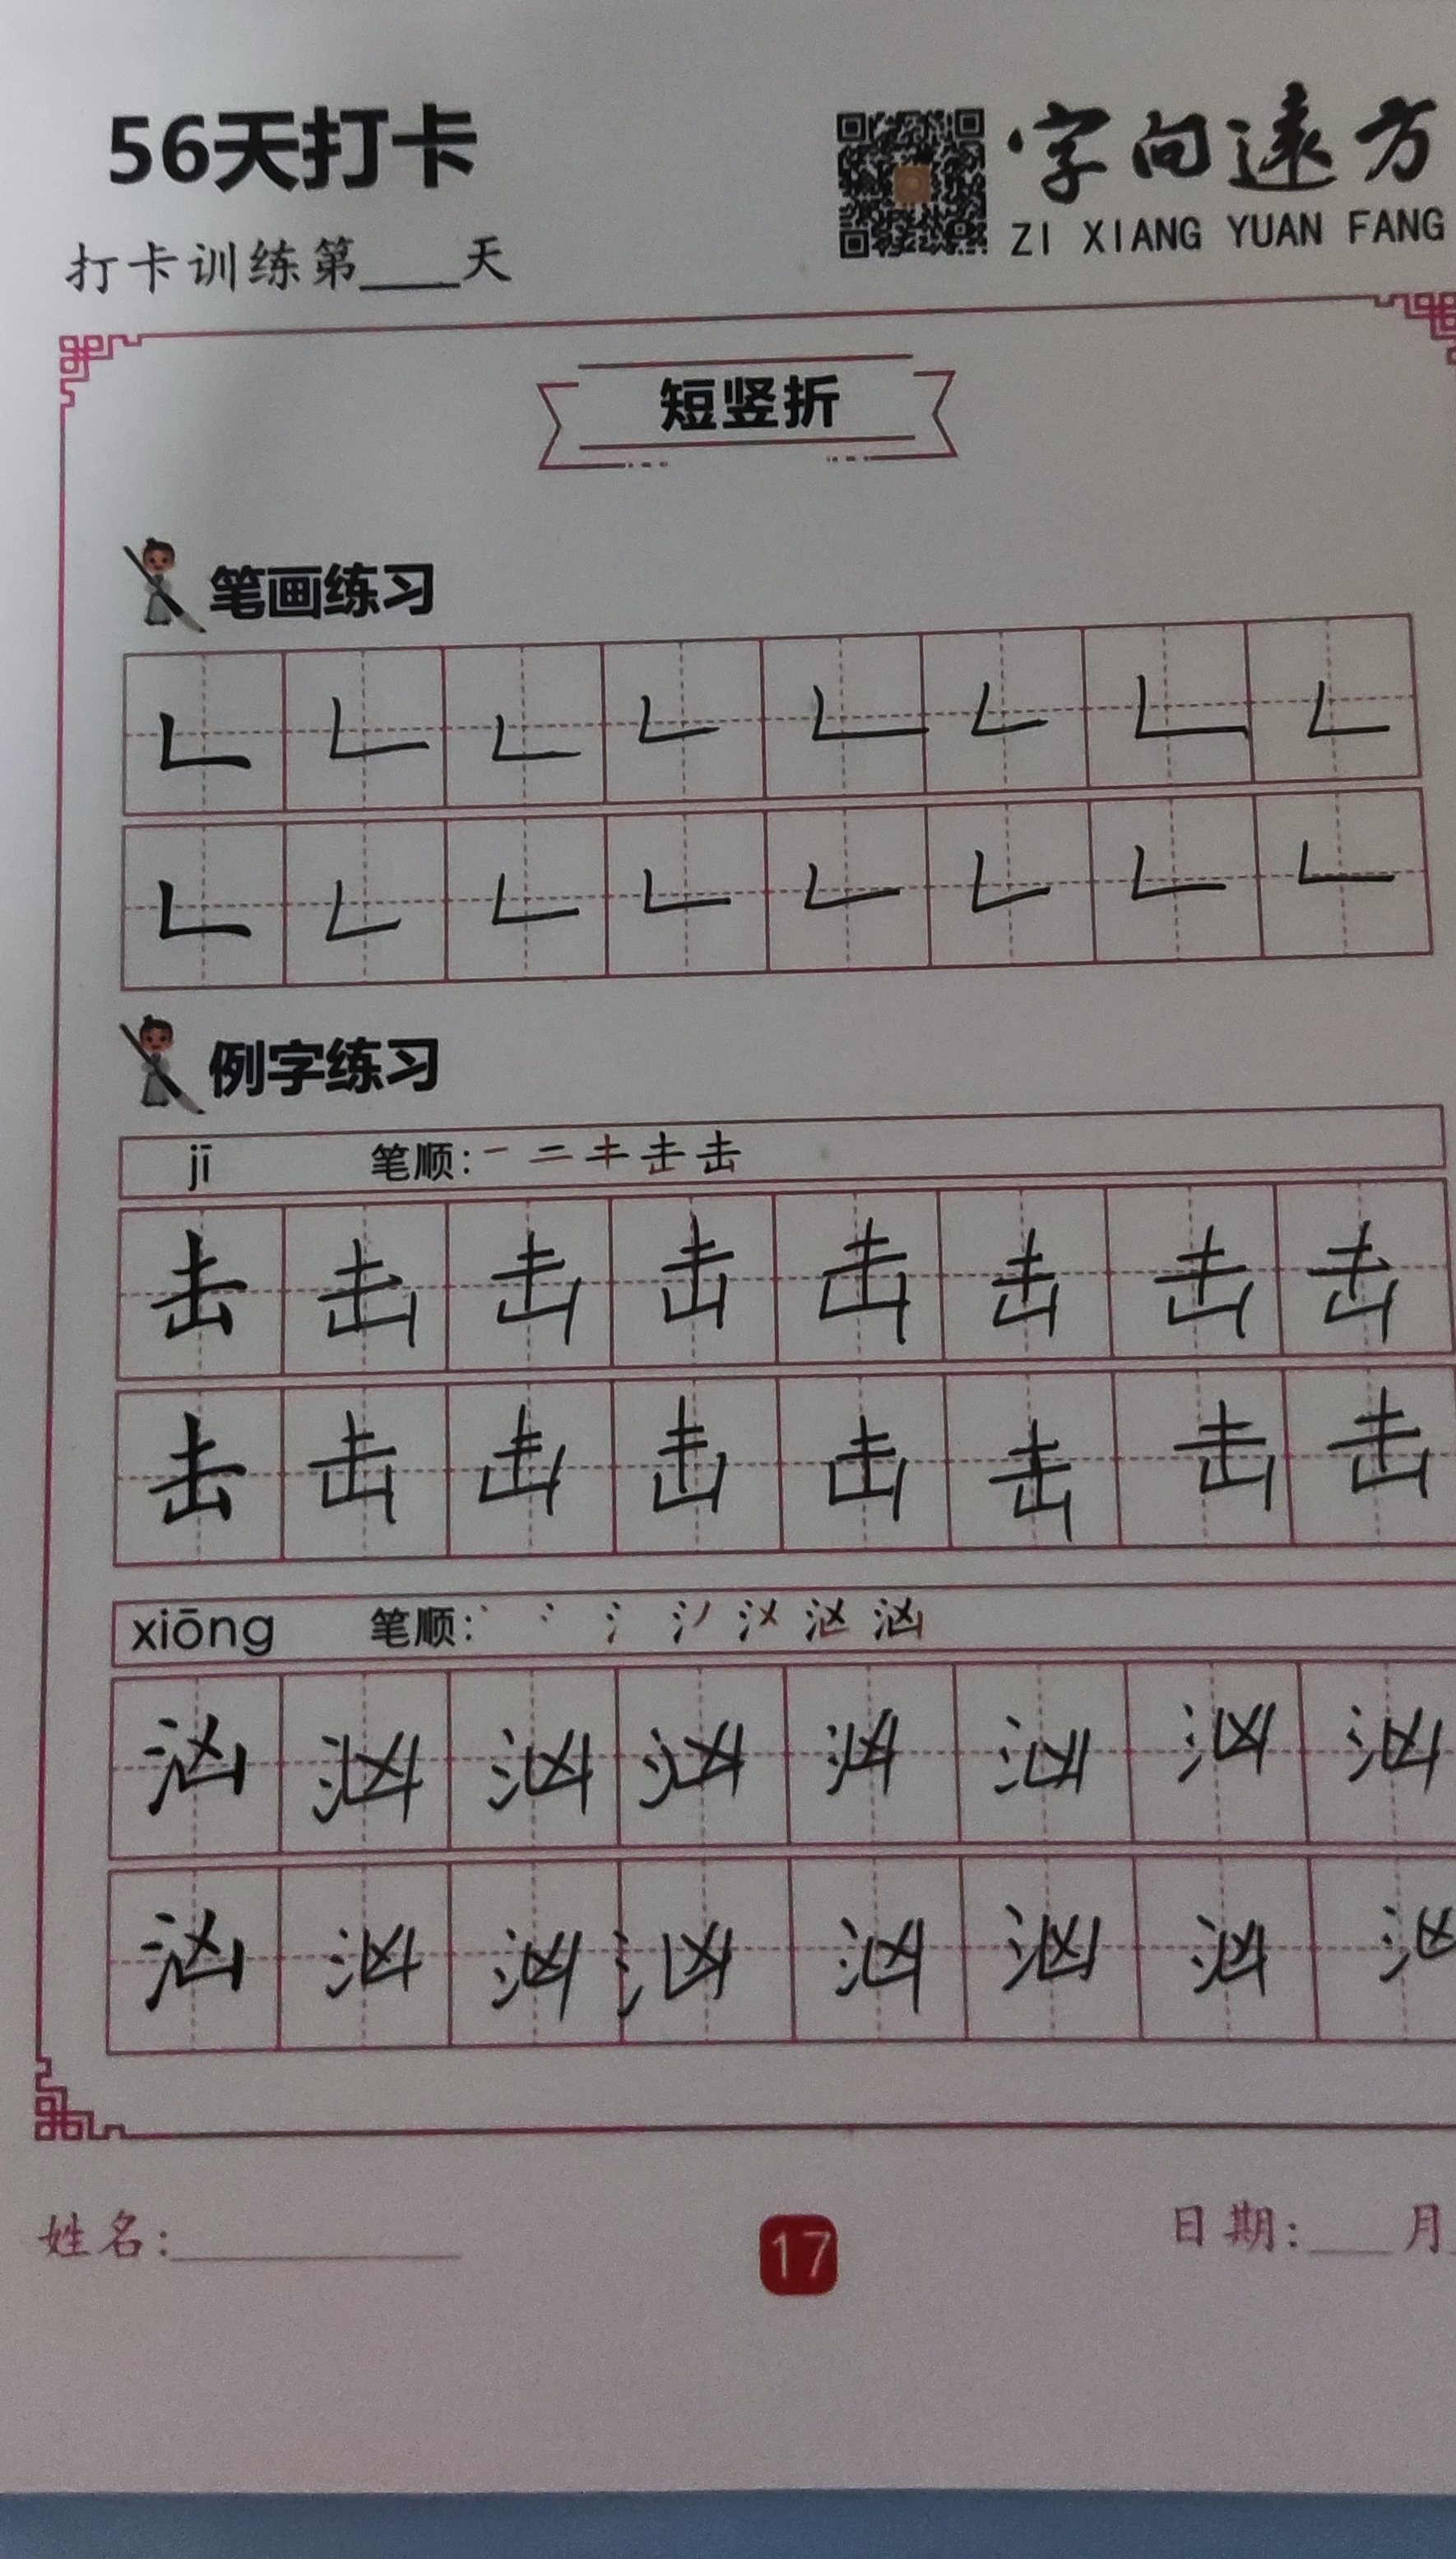 56天打卡
字向遠方
ZI XIANG YUAN FANG
打卡训练第____天
短竖折
笔画练习
例字练习
jī 笔顺: 击
击 击 击 击 击 击 击 击
击 击 击 击 击 击 击 击
xiōng 笔顺: 汹
汹 汹 汹 汹 汹 汹 汹 汹
汹 汹 汹 汹 汹 汹 汹 汹
姓名:
17
日期:___月